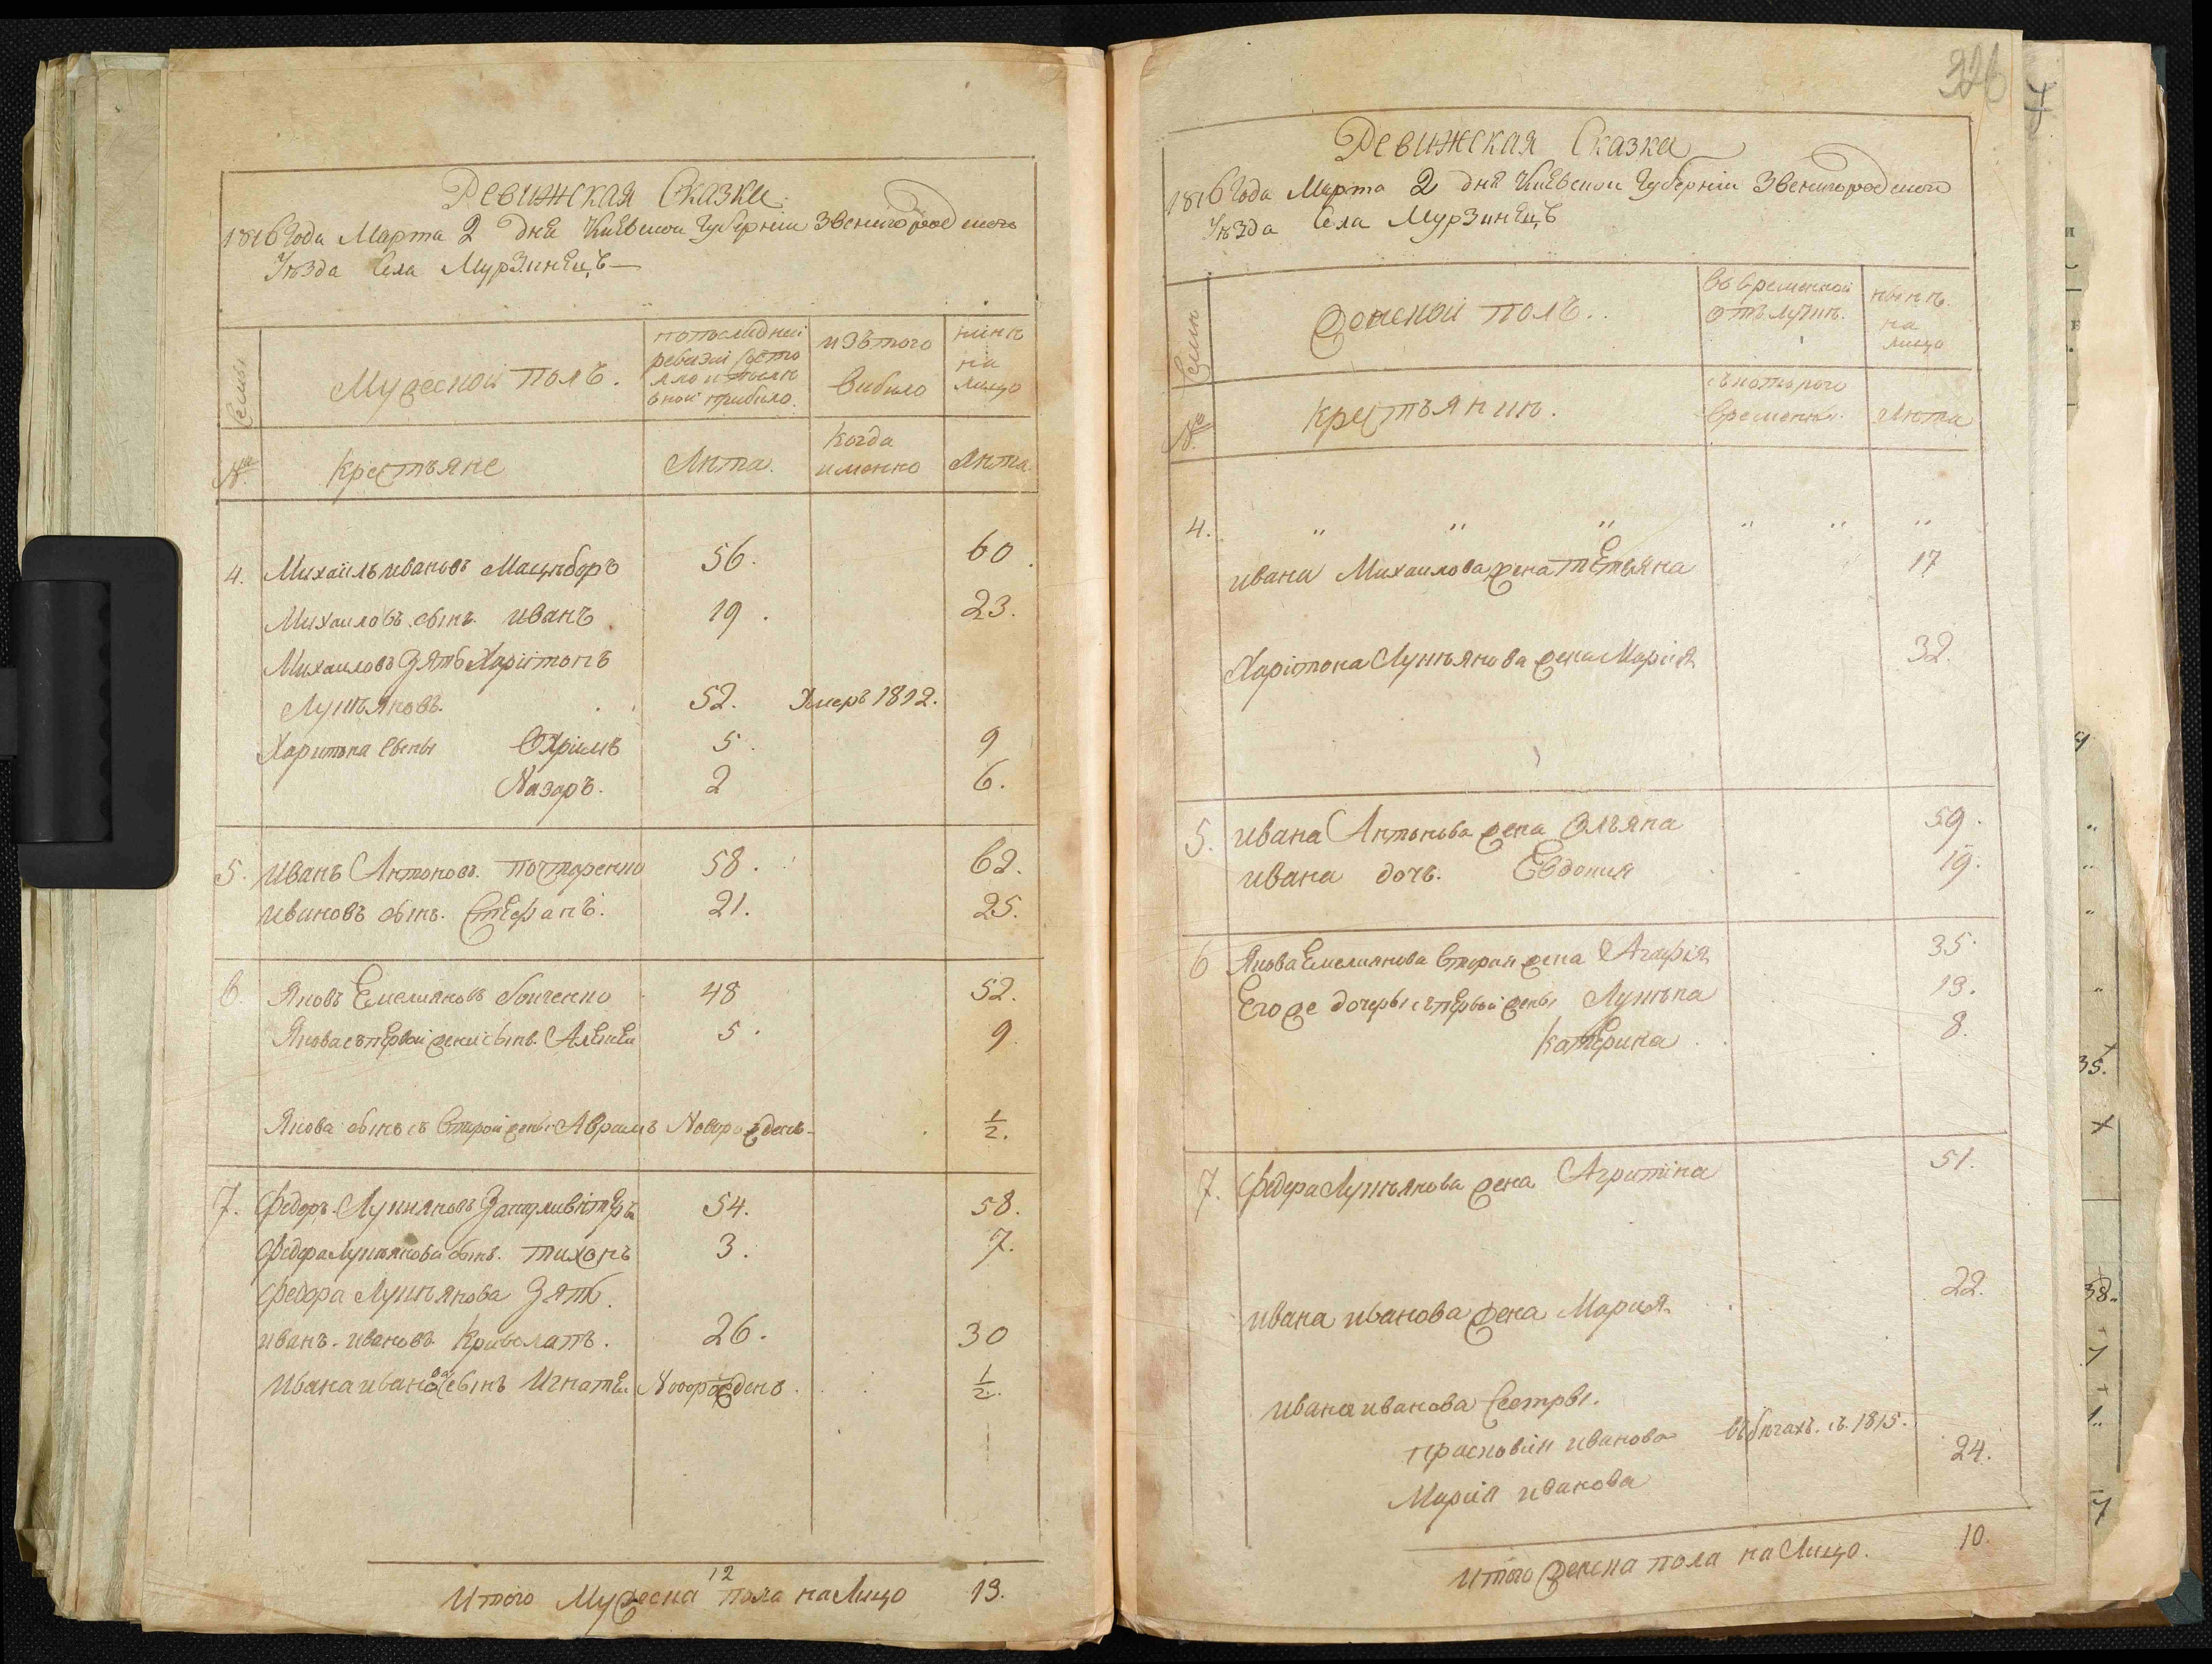 Ревижская Сказка
1816 Года Марта 2 дня Киевской Губернии Звенигородского
Уѣзда Села Мурзинецъ
Семьи
Мужеской полъ.
по последней ревизии состояло и после оной прибыло.
изътого выбыло
нинѣ на лицо
№
Крестьяне
Лѣта.
Когда именно
Лѣта.
4. Михаилъ ивановъ Мациборъ 56. 60.
Михаиловъ сынъ иванъ 19. 23.
Михаиловъ Зять Харитонъ
Лукъяновъ. 52. Умеръ 1812.
Харитона сыны Охримъ 5. 9
Назаръ. 2 6.
5. иванъ Антоновъ почтаренко 58. 62.
ивановъ сынъ. Стефанъ. 21. 25.
6. Яковъ Емелияновъ бойченко 48 52.
Якова съ первой жены сынъ Алексей 5. 9.
Якова сынъ съ второй жены Аврамъ Новорожденъ 1/2.
7. Федоръ Лукияновъ 54. 58.
Федора Лукиянова сынъ. тихонъ 3. 7.
Федора Лукиянова Зять
иванъ ивановъ Криволапъ. 26. 30
Ивана иванова сынъ Игнатей Новорожденъ. 1/2.
12
Итого Мужеска пола на Лицо 13.
326
Ревижская Сказка
1816 Года Марта 2 дня Киевской Губернии Звенигородского
Уѣзда Села Мурзинецъ
Семьи
Женской полъ..
въ временной отълучкѣ.
нынѣ. на лицо
№
Крестьянки.
съ которого времени.
Лѣта
4. " " " " " "
ивана Михаилова жена тетьяна 17
Харитона Лукъянова жена Мария 32.
5. ивана Антонова жена Ульяна 59.
ивана дочь. Евдокия 19.
6 Якова Емелиянова вторая жена Агафия 35.
Его же дочеры съ первой жены Лукѣна 13.
Катерина 8.
7. Федора Лукъянова жена Агрипина 51.
ивана иванова жена Мария 22.
ивана иванова сестры.
прасковия иванова въ бѣгахъ. съ. 1815.
Мария иванова 24.
итого женска пола на Лицо. 10.